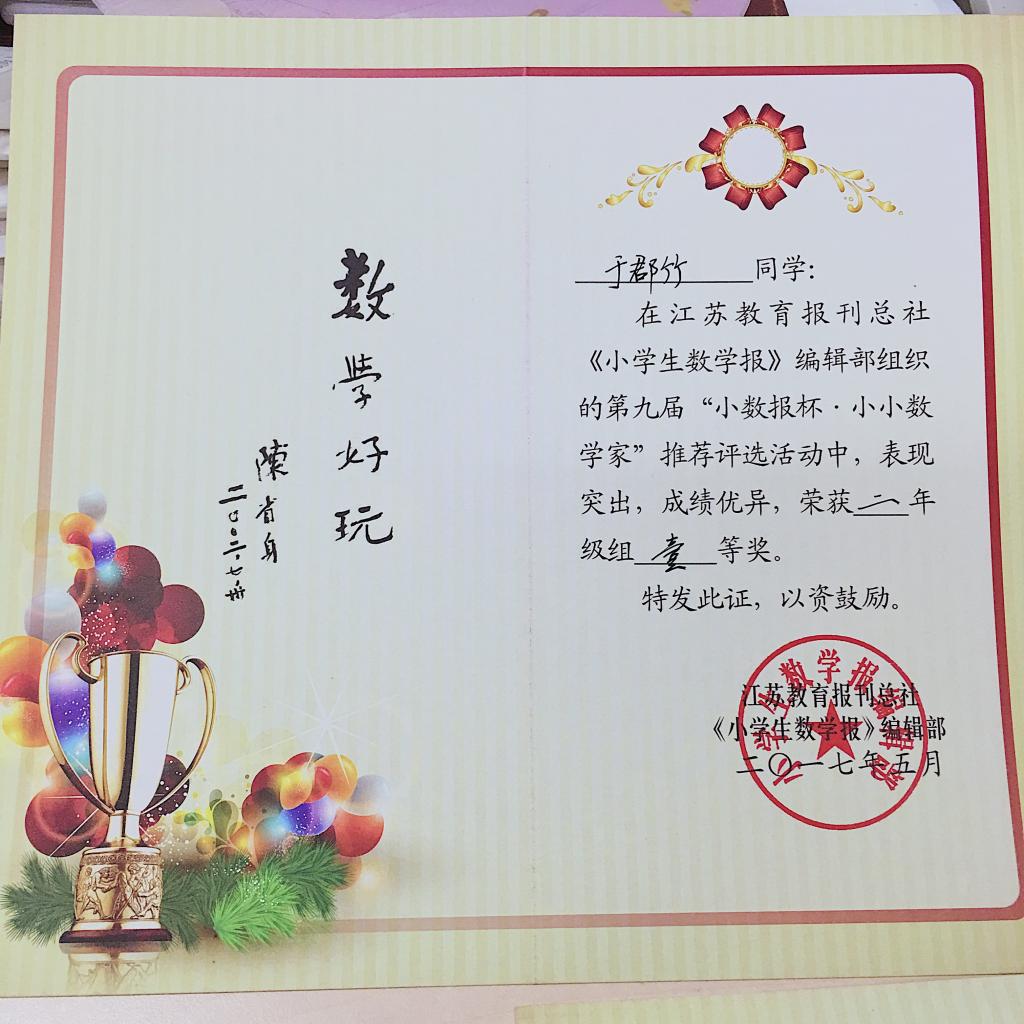 數學好玩
陳省身
二〇〇二.七.卅
于郡竹 同学：
在江苏教育报刊总社
《小学生数学报》编辑部组织
的第九届“小数报杯·小小数
学家”推荐评选活动中，表现
突出，成绩优异，荣获二年
级组壹等奖。
特发此证，以资鼓励。
小学生数学报编辑部
江苏教育报刊总社
《小学生数学报》编辑部
二〇一七年五月